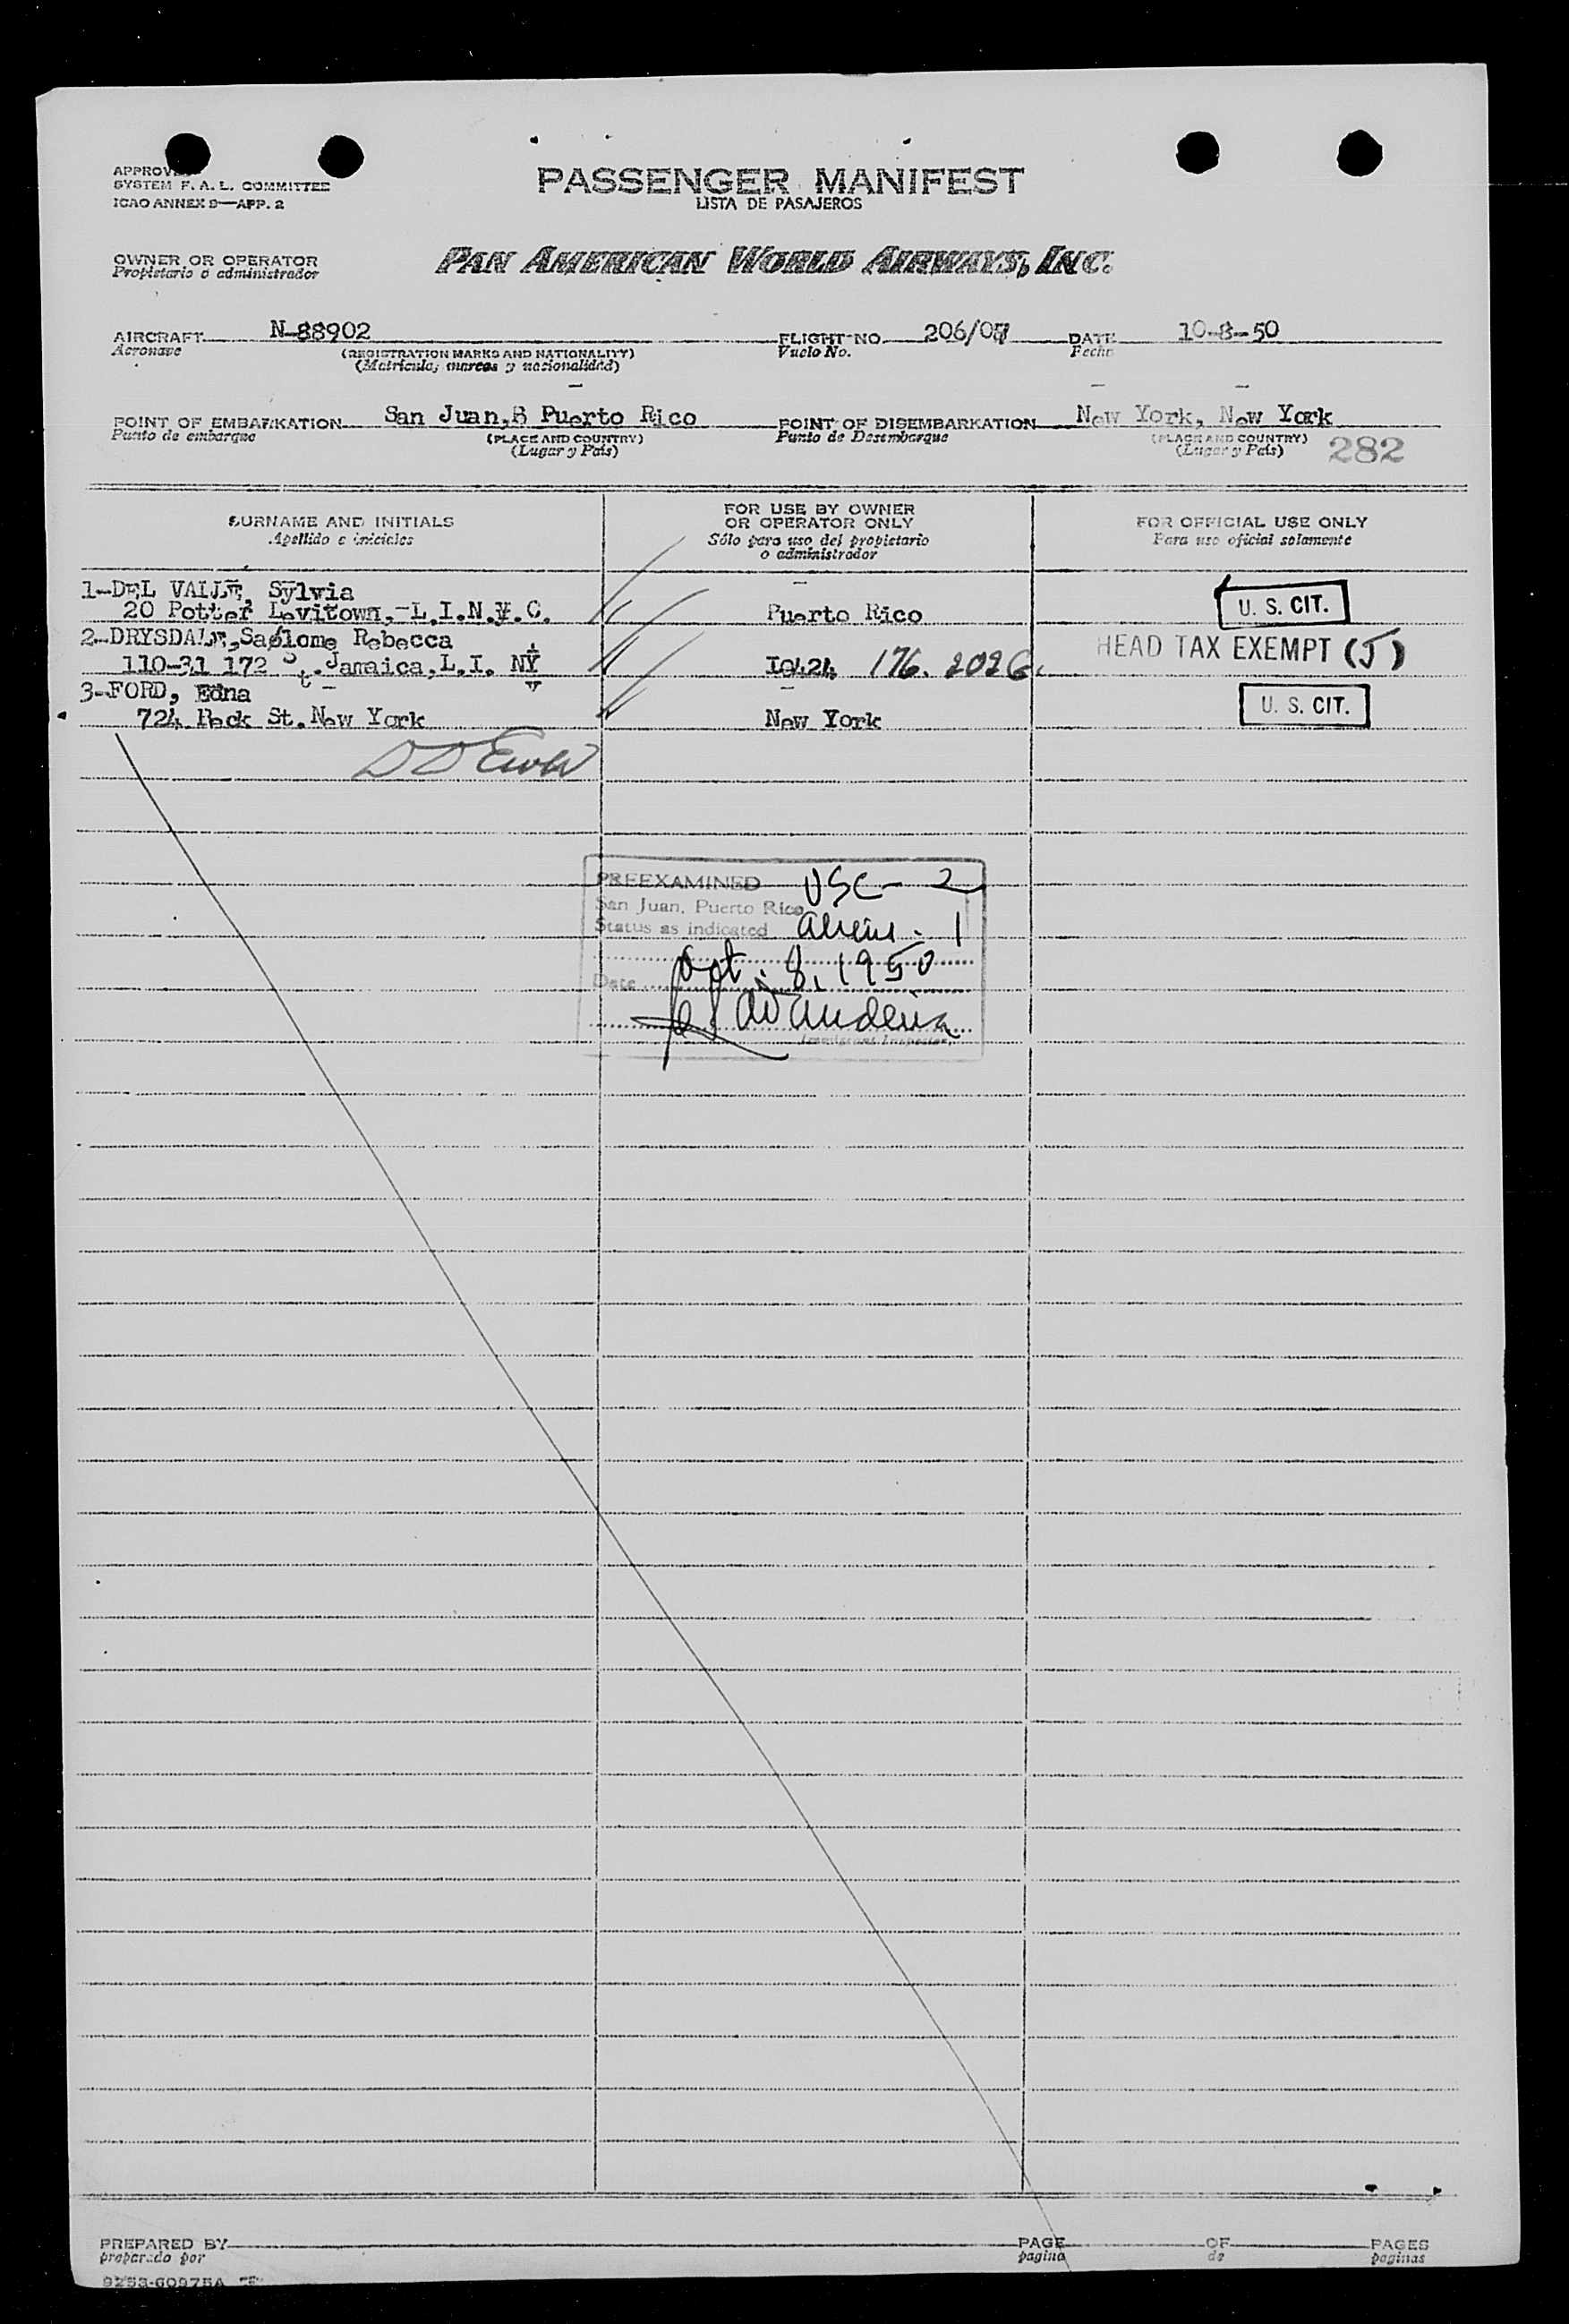 SYSTEM F. A. L. COMMITTEE
ICAO ANNEX 9—APP. 2
PASSENGER MANIFEST
LISTA DE PASAJEROS
OWNER OR OPERATOR
Propietario o administrador
PAN AMERICAN WORLD AIRWAYS, INC.
AIRCRAFT N-88902 FLIGHT NO. 206/07 DATE 10-8-50
Aeronave (REGISTRATION MARKS AND NATIONALITY) Vuelo No. Fecha
(Matricula, marcas y nacionalidad)
POINT OF EMBARKATION San Juan, Puerto Rico POINT OF DISEMBARKATION New York, New York
Punto de embarque (PLACE AND COUNTRY) Punto de Desembarque (PLACE AND COUNTRY)
(Lugar y País) (Lugar y País) 282
SURNAME AND INITIALS FOR USE BY OWNER OR OPERATOR ONLY FOR OFFICIAL USE ONLY
Apellido e iniciales Sólo para uso del propietario o administrador Para uso oficial solamente
1-DEL VALLE, Sylvia
20 Potter Levitown, L.I.N.Y.C. Puerto Rico U. S. CIT.
2-DRYSDALE, Salome Rebecca
110-31 172 St. Jamaica, L.I. NY 176. 2026. HEAD TAX EXEMPT (J)
3-FORD, Edna
724 Beck St. New York New York U. S. CIT.
PREEXAMINED USC - 2
San Juan, Puerto Rico
Status as indicated Aliens - 1
Date Oct. 8, 1950
Immigrant Inspector
PREPARED BY PAGE OF PAGES
preparado por pagina de paginas
9253-60975A